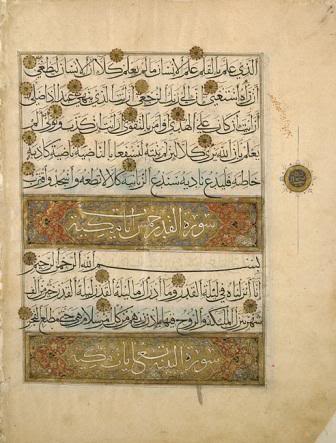 الذي علم بالقلم علم الإنسان ما لم يعلم كلا إن الإنسان ليطغى
أن رآه استغنى إن إلى ربك الرجعى أرأيت الذي ينهى عبدا إذا صلى
أرأيت إن كان على الهدى أو أمر بالتقوى أرأيت إن كذب وتولى ألم
يعلم بأن الله يرى كلا لئن لم ينته لنسفعا بالناصية ناصية كاذبة
خاطئة فليدع ناديه سندع الزبانية كلا لا تطعه واسجد واقترب
سورة القدر خمس آيات مكية
بسم الله الرحمن الرحيم
إنا أنزلناه في ليلة القدر وما أدراك ما ليلة القدر ليلة القدر خير من ألف
شهر تنزل الملائكة والروح فيها بإذن ربهم من كل أمر سلام هي حتى مطلع الفجر
سورة البينة آيات مكية